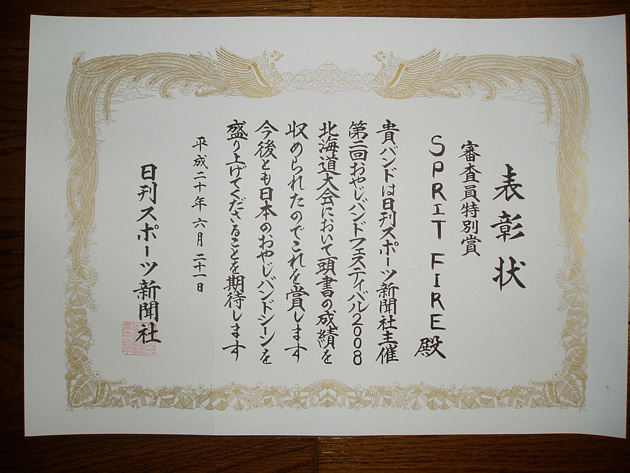 表彰状
審査員特別賞
SPRIT FIRE 殿
貴バンドは日刊スポーツ新聞社主催
第二回おやじバンドフェスティバル2008
北海道大会において頭書の成績を
収められたのでこれを賞します
今後とも日本のおやじバンドシーンを
盛り上げてくださることを期待します
平成二十年六月二十一日
日刊スポーツ新聞社